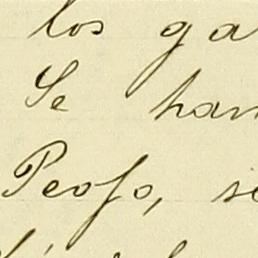 los ga
Se han
Peofo, se